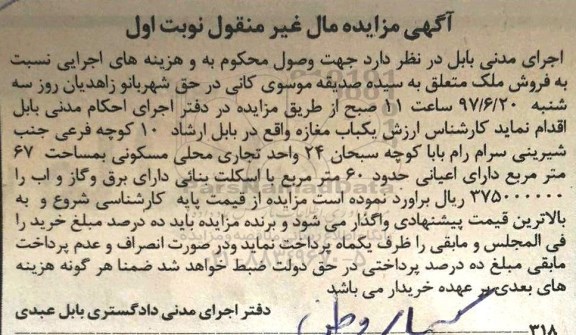 آگهی مزایده مال غیر منقول نوبت اول
اجرای مدنی بابل در نظر دارد جهت وصول محکوم به و هزینه های اجرایی نسبت
به فروش ملک متعلق به سیده صدیقه موسوی کانی در حق شهربانو زاهدیان روز سه
شنبه ۹۷/۶/۲۰ ساعت ۱۱ صبح از طریق مزایده در دفتر اجرای احکام مدنی بابل
اقدام نماید کارشناس ارزش یکباب مغازه واقع در بابل ارشاد ۱۰ کوچه فرعی جنب
شیرینی سرام رام بابا کوچه سبحان ۲۴ واحد تجاری محلی مسکونی بمساحت ۶۷
متر مربع دارای اعیانی حدود ۶۰ متر مربع با اسکلت بنائی دارای برق وگاز و اب را
۳۷۵۰۰۰۰۰۰ ریال براورد نموده است مزایده از قیمت پایه کارشناسی شروع و به
بالاترین قیمت پیشنهادی واگذار می شود و برنده مزایده باید ده درصد مبلغ خرید را
فی المجلس و مابقی را ظرف یکماه پرداخت نماید ودر صورت انصراف و عدم پرداخت
مابقی مبلغ ده درصد پرداختی در حق دولت ضبط خواهد شد ضمنا هر گونه هزینه
های بعدی بر عهده خریدار می باشد
دفتر اجرای مدنی دادگستری بابل عبدی
۳۱۸
ParsNamadData